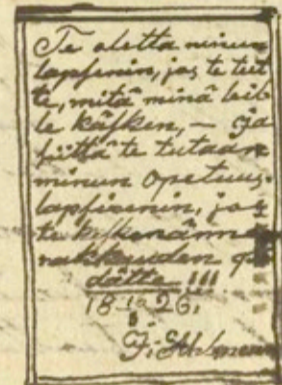 Te oletta minun
lapsenin, jos te teit
te, mitä minä teil
le käsken, — ja
siittä te tutaan
minun opetuus-
lapsixenin, jos
te keskenänne
rakkauden pi-
dätte !!!
18 26.